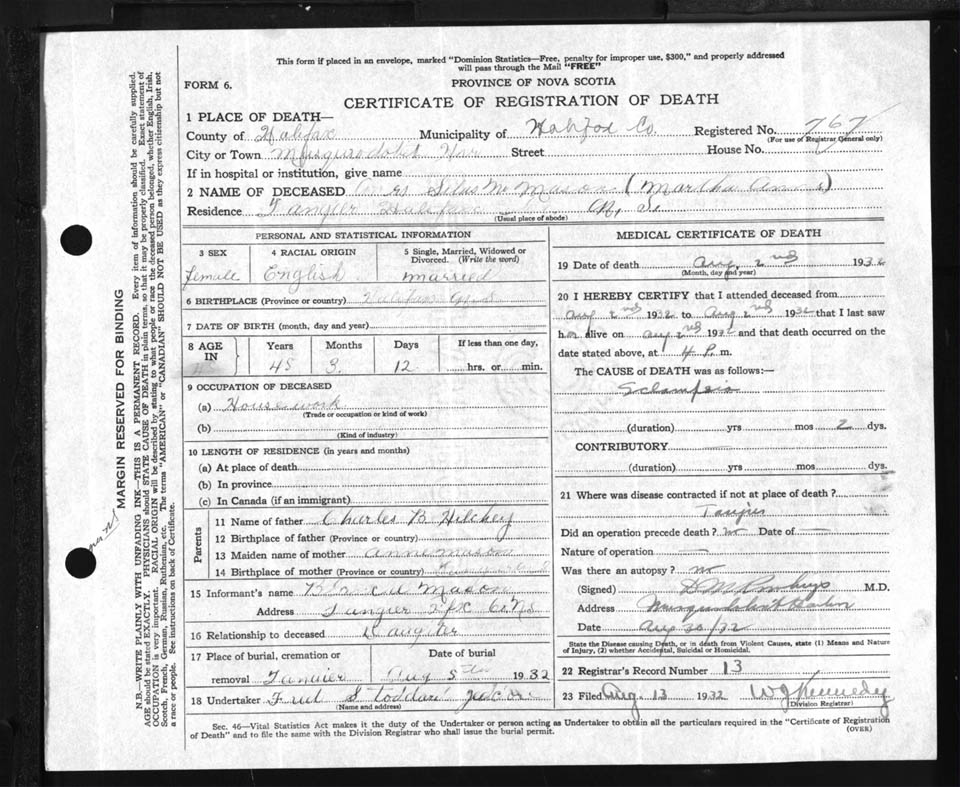 This form if placed in an envelope, marked "Dominion Statistics—Free, penalty for improper use, $300," and properly addressed
will pass through the Mail "FREE"
FORM 6.
PROVINCE OF NOVA SCOTIA
CERTIFICATE OF REGISTRATION OF DEATH
1 PLACE OF DEATH—
County of Halifax Municipality of Halifax Co. Registered No. 767
(For use of Registrar General only)
City or Town Street House No.
If in hospital or institution, give name
2 NAME OF DECEASED Silas Mc Mason (Martha
Residence Tangier Halifax N. S.
(Usual place of abode)
PERSONAL AND STATISTICAL INFORMATION
3 SEX 4 RACIAL ORIGIN 5 Single, Married, Widowed or Divorced. (Write the word)
female English married
6 BIRTHPLACE (Province or country)
7 DATE OF BIRTH (month, day and year)
8 AGE IN Years Months Days If less than one day,
45 3 12 hrs. or min.
9 OCCUPATION OF DECEASED
(a) House work
(Trade or occupation or kind of work)
(b)
(Kind of industry)
10 LENGTH OF RESIDENCE (in years and months)
(a) At place of death
(b) In province
(c) In Canada (if an immigrant)
Parents
11 Name of father Charles B Hilchey
12 Birthplace of father (Province or country)
13 Maiden name of mother Anne Mason
14 Birthplace of mother (Province or country)
15 Informant's name Mason
Address Tangier Hfx Co NS
16 Relationship to deceased Daugter
17 Place of burial, cremation or Date of burial
removal Tanier Aug 5th 1932
18 Undertaker Fred Stoddard
(Name and address)
MEDICAL CERTIFICATE OF DEATH
19 Date of death Aug 2nd 1932
(Month, day and year)
20 I HEREBY CERTIFY that I attended deceased from
Aug 2nd 1932 to Aug 2nd 1932 that I last saw
her alive on Aug 2nd 1932 and that death occurred on the
date stated above, at 4 P. m.
The CAUSE of DEATH was as follows:—
Eclampsia
(duration) yrs mos 2 dys.
CONTRIBUTORY
(duration) yrs mos dys.
21 Where was disease contracted if not at place of death?
Tangier
Did an operation precede death? no Date of —
Nature of operation —
Was there an autopsy? no
(Signed) M.D.
Address
Date Aug 30/32
State the Disease causing Death, or in death from Violent Causes, state (1) Means and Nature
of Injury, (2) whether Accidental, Suicidal or Homicidal.
22 Registrar's Record Number 13
23 Filed Aug. 13 1932 W J Kennedy
(Division Registrar)
Sec. 46—Vital Statistics Act makes it the duty of the Undertaker or person acting as Undertaker to obtain all the particulars required in the "Certificate of Registration
of Death" and to file the same with the Division Registrar who shall issue the burial permit. (OVER)
MARGIN RESERVED FOR BINDING
N.B.—WRITE PLAINLY WITH UNFADING INK—THIS IS A PERMANENT RECORD. Every item of information should be carefully supplied.
AGE should be stated EXACTLY. PHYSICIANS should STATE CAUSE OF DEATH in plain terms, so that it may be properly classified. Exact statement of
OCCUPATION is very important. RACIAL ORIGIN will be described by stating to what people or race the deceased person belonged, whether English, Irish,
Scotch, French, German, Russian, Ruthenian, etc. The terms "AMERICAN" or "CANADIAN" SHOULD NOT BE USED as they express citizenship but not
a race or people. See instructions on back of Certificate.